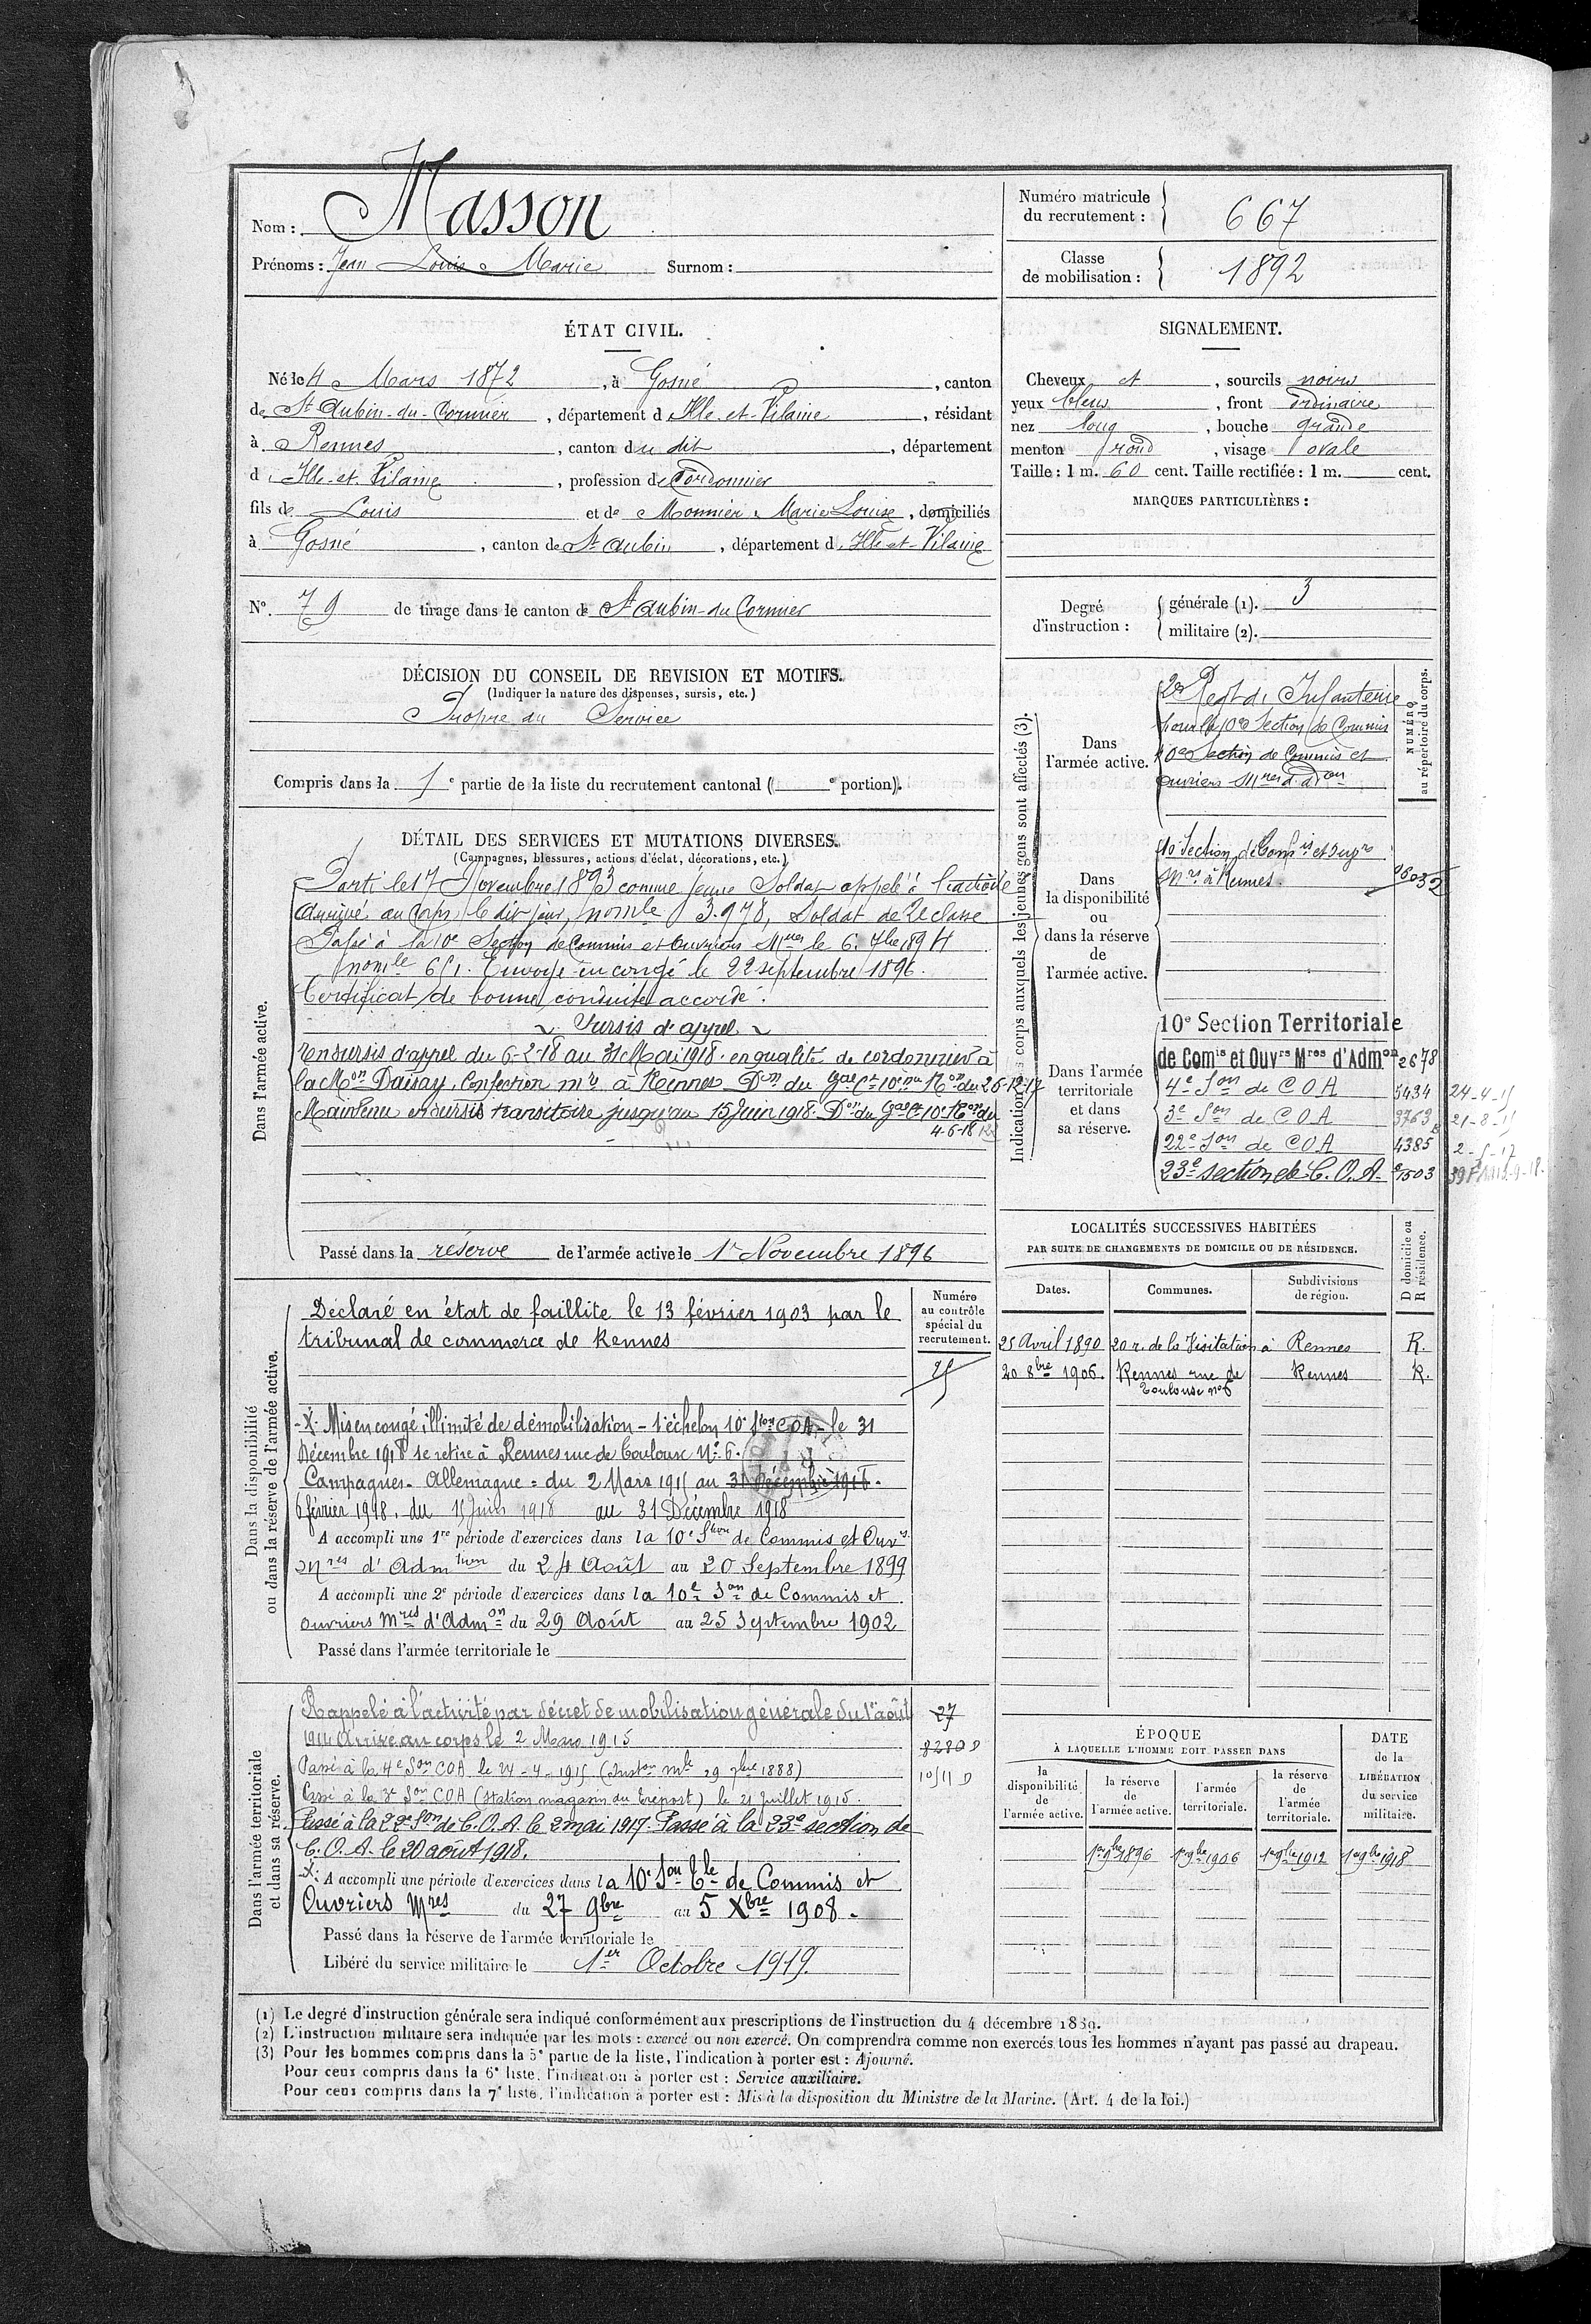 Nom : Masson
Prénoms : Jean Louis Marie Surnom :
Numéro matricule du recrutement : 667
Classe de mobilisation : 1892
ÉTAT CIVIL.
Né le 4 Mars 1872, à Gosné, canton
de St Aubin-du-Cormier, département d Ille-et-Vilaine, résidant
à Rennes, canton du dit, département
d Ille-et-Vilaine, profession de Cordonnier
fils de Louis et de Monnier Marie Louise, domiciliés
à Gosné, canton de St Aubin, département d Ille-et-Vilaine
N° 79 de tirage dans le canton de St Aubin-du-Cormier
SIGNALEMENT.
Cheveux et, sourcils noirs
yeux bleus, front ordinaire
nez long, bouche grande
menton rond, visage ovale
Taille : 1 m. 60 cent. Taille rectifiée : 1 m. cent.
MARQUES PARTICULIÈRES :
Degré d'instruction : générale (1). 3
militaire (2).
DÉCISION DU CONSEIL DE REVISION ET MOTIFS.
(Indiquer la nature des dispenses, sursis, etc.)
Propre au Service
Compris dans la 1e partie de la liste du recrutement cantonal ( e portion).
DÉTAIL DES SERVICES ET MUTATIONS DIVERSES.
(Campagnes, blessures, actions d'éclat, décorations, etc.)
Dans l'armée active.
Parti le 17 Novembre 1893 comme jeune Soldat appelé à l'activité
Arrivé au Corps le dit jour, nomle 3.978, Soldat de 2e classe
Passé à la 10e Section de Commis et Ouvriers Mres le 6 7bre 1894
nomle 651. Envoyé en congé le 22 septembre 1896.
Certificat de bonne conduite accordé.
~ Sursis d'appel ~
En sursis d'appel du 6-2-18 au 31 Mai 1918 en qualité de cordonnier à
la Mon Daisay, Confection mre à Rennes Don du Gal Ct 10e Ron du 26-12-17
Maintenu en sursis transitoire jusqu'au 15 Juin 1918. Don du Gal Ct 10e Ron du
4-6-18
Passé dans la réserve de l'armée active le 1er Novembre 1896
Indication des corps auxquels les jeunes gens sont affectés (3).
NUMÉRO au répertoire du corps.
Dans l'armée active.
2e Regt d'Infanterie
pour la 10e Section de Commis
10e Section de Commis et
ouvriers Mres d'Adon
Dans la disponibilité ou dans la réserve de l'armée active.
10e Section de Commis et Ouvrs
Mres à Rennes.
Dans l'armée territoriale et dans sa réserve.
10e Section Territoriale
de Comis et Ouvrs Mres d'Admon 2678
4e Son de C O A 5434 24-4-15
3e Son de C O A 3763 21-8-15
22e Son de C O A 4385 2-5-17
23e section de C.O.A. 1503
LOCALITÉS SUCCESSIVES HABITÉES
PAR SUITE DE CHANGEMENTS DE DOMICILE OU DE RÉSIDENCE.
Dates. Communes. Subdivisions de région. D domicile ou R résidence.
25 Avril 1890 20 r. de la Visitation à Rennes R.
20 8bre 1906. Rennes rue de Toulouse n°6 Rennes R.
Dans la disponibilité ou dans la réserve de l'armée active.
Numéro au contrôle spécial du recrutement.
Déclaré en état de faillite le 13 février 1903 par le
tribunal de commerce de Rennes
-X- Mis en congé illimité de démobilisation - 1er échelon 10e Son COA - le 31
Décembre 1918 se retire à Rennes rue de Toulouse N° 6.
Campagnes. Allemagne = du 2 Mars 1915 au 31 Décembre 1918.
6 février 1918. du 15 Juin 1918 au 31 Décembre 1918
A accompli une 1re période d'exercices dans la 10e Son de Commis et Ouvrs
Mres d'Admtion du 24 Août au 20 Septembre 1899
A accompli une 2e période d'exercices dans la 10e Son de Commis et
ouvriers Mres d'Admon du 29 Août au 25 Septembre 1902
Passé dans l'armée territoriale le
Dans l'armée territoriale et dans sa réserve.
Rappelé à l'activité par décret de mobilisation générale du 1er août 27
1914 Arrivé au corps le 2 Mars 1915 8280 D
Passé à la 4e Son COA le 24-4-1915 (Inston mle 29 7bre 1888)
Passé à la 3e Son COA (Station magasin du Tréport) le 21 juillet 1915.
Passé à la 22e Son de C.O.A. le 2 mai 1917. Passé à la 23e section de
C.O.A. le 20 août 1918.
-X- A accompli une période d'exercices dans la 10e Son Tle de Commis et
Ouvriers Mres du 27 9bre au 5 Xbre 1908.
Passé dans la réserve de l'armée territoriale le
Libéré du service militaire le 1er Octobre 1919.
ÉPOQUE
À LAQUELLE L'HOMME DOIT PASSER DANS
la disponibilité de l'armée active. la réserve de l'armée active. l'armée territoriale. la réserve de l'armée territoriale. DATE de la LIBÉRATION du service militaire.
1er 9bre 1896 1er 9bre 1906 1er 9bre 1912 1er 9bre 1918
(1) Le degré d'instruction générale sera indiqué conformément aux prescriptions de l'instruction du 4 décembre 1889.
(2) L'instruction militaire sera indiquée par les mots : exercé ou non exercé. On comprendra comme non exercés tous les hommes n'ayant pas passé au drapeau.
(3) Pour les hommes compris dans la 5e partie de la liste, l'indication à porter est : Ajourné.
Pour ceux compris dans la 6e liste, l'indication à porter est : Service auxiliaire.
Pour ceux compris dans la 7e liste, l'indication à porter est : Mis à la disposition du Ministre de la Marine. (Art. 4 de la loi.)